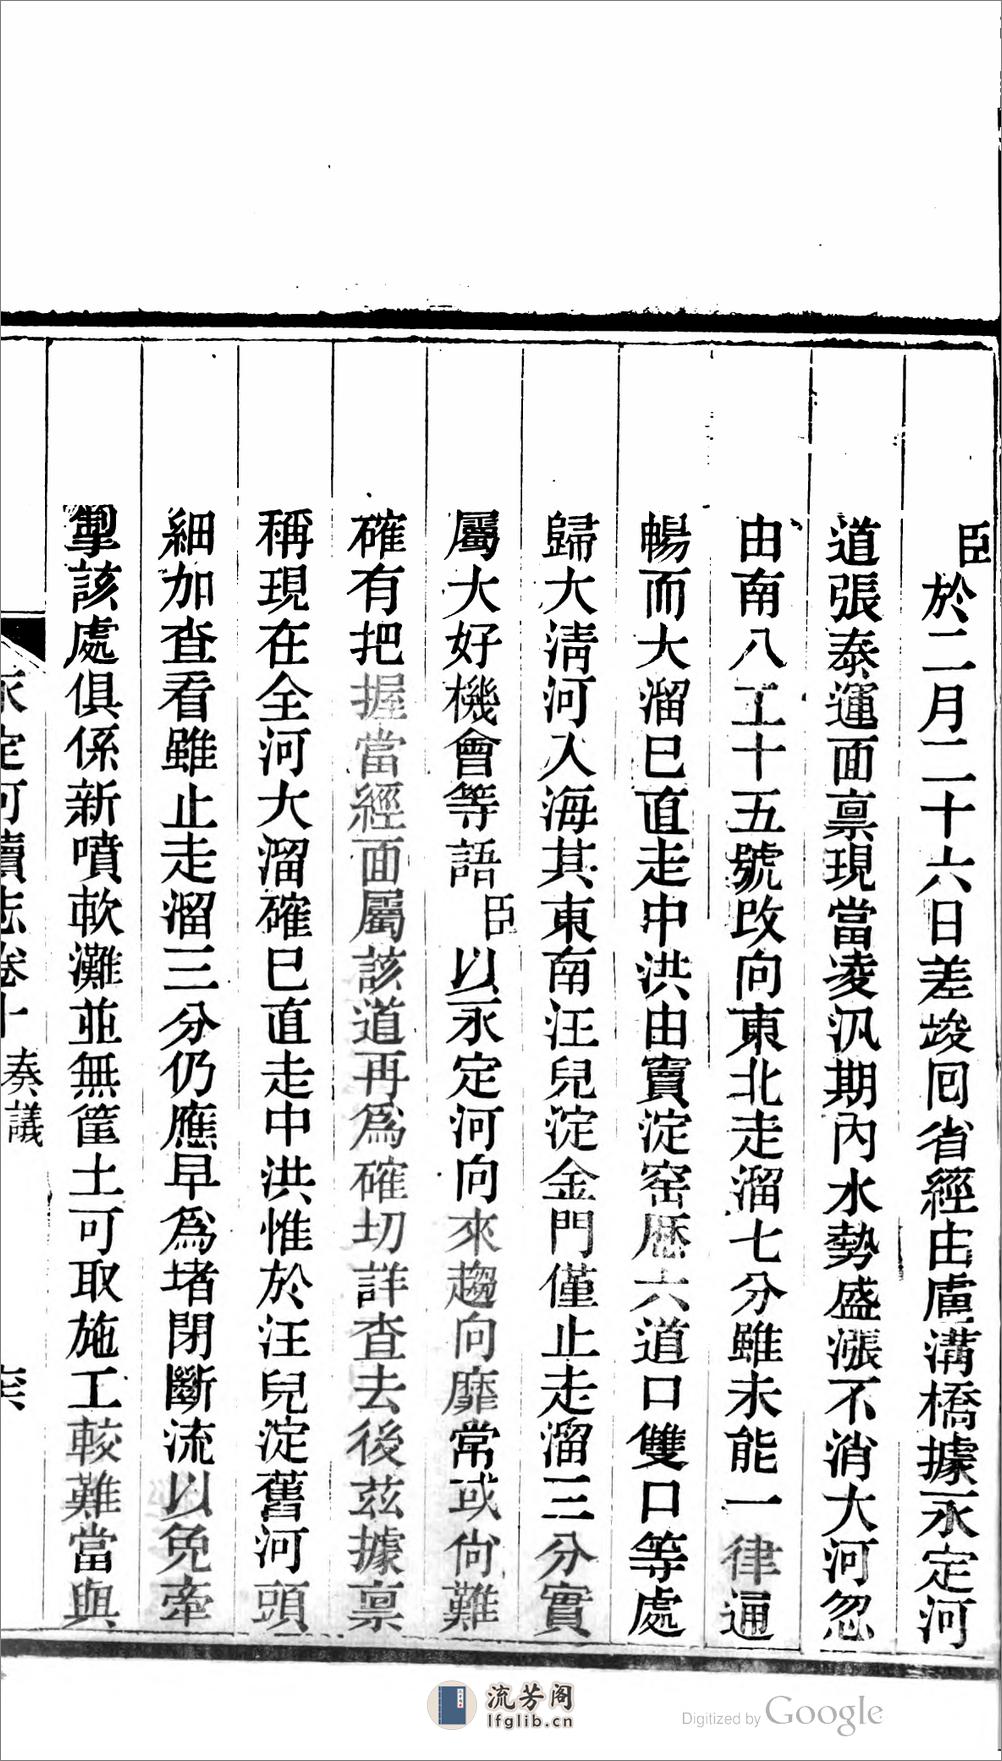 臣於二月二十六日差竣囘省經由盧溝橋據永定河
道張泰運面禀現當凌汛期內水勢盛漲不消大河忽
由南八工十五號改向東北走溜七分雖未能一律通
暢而大溜已直走中洪由竇淀窑歷六道口雙口等處
歸大淸河入海其東南汪兒淀金門僅止走溜三分實
屬大好機會等語臣以永定河向來趨向靡常或尙難
確有把握當經面屬該道再爲確切詳查去後茲據禀
稱現在全河大溜確已直走中洪惟於汪兒淀舊河頭
細加查看雖止走溜三分仍應早爲堵閉斷流以免牽
掣該處俱係新噴軟灘並無筐土可取施工較難當與
永定河續志卷十 奏議
流芳阁
lfglib.cn
Digitized by Google